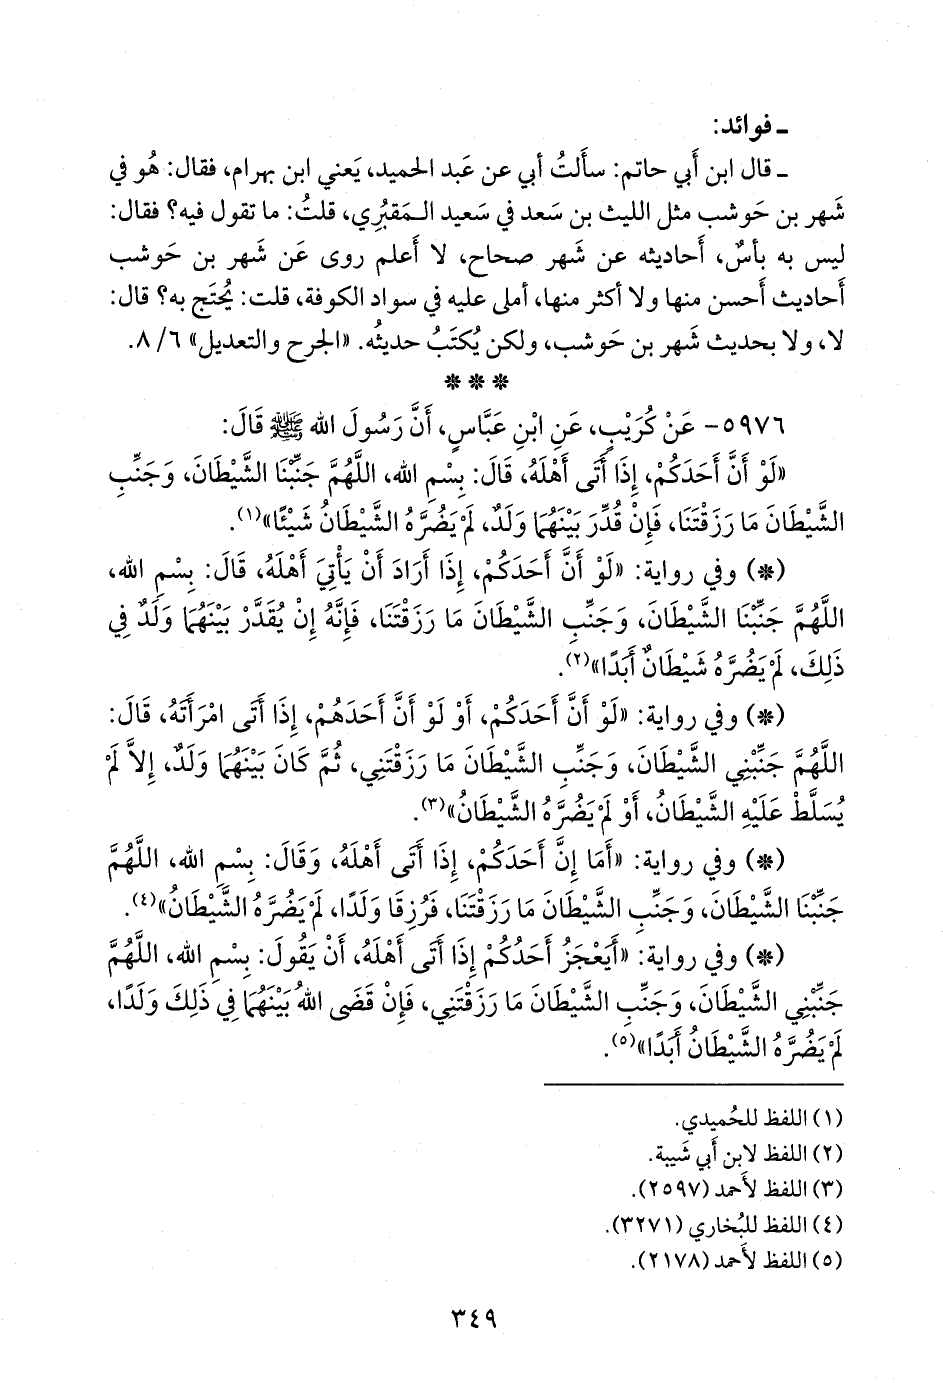 ـ فوائد:
ـ قال ابن أَبي حاتم: سأَلتُ أبي عن عَبد الحميد، يَعني ابن بهرام، فقال: هُو في
شَهر بن حَوشب مثل الليث بن سَعد في سَعيد الـمَقبُري، قلتُ: ما تقول فيه؟ فقال:
ليس به بأسٌ، أَحاديثه عن شَهر صحاح، لا أَعلم روى عَن شَهر بن حَوشب
أَحاديث أَحسن منها ولا أكثر منها، أملى عليه في سواد الكوفة، قلت: يُحتَج به؟ قال:
لا، ولا بحديث شَهر بن حَوشب، ولكن يُكتَبُ حديثُه. «الجرح والتعديل» ٦/ ٨.
* * *
٥٩٧٦- عَنْ كُرَيْبٍ، عَنِ ابْنِ عَبَّاسٍ، أَنَّ رَسُولَ الله ﷺ قَالَ:
«لَوْ أَنَّ أَحَدَكُمْ، إِذَا أَتَى أَهْلَهُ، قَالَ: بِسْمِ الله، اللَّهُمَّ جَنِّبْنَا الشَّيْطَانَ، وَجَنِّبِ
الشَّيْطَانَ مَا رَزَقْتَنَا، فَإِنْ قُدِّرَ بَيْنَهُمَا وَلَدٌ، لَمْ يَضُرَّهُ الشَّيْطَانُ شَيْئًا»(١).
(*) وفي رواية: «لَوْ أَنَّ أَحَدَكُمْ، إِذَا أَرَادَ أَنْ يَأْتِيَ أَهْلَهُ، قَالَ: بِسْمِ الله،
اللَّهُمَّ جَنِّبْنَا الشَّيْطَانَ، وَجَنِّبِ الشَّيْطَانَ مَا رَزَقْتَنَا، فَإِنَّهُ إِنْ يُقَدَّرْ بَيْنَهُمَا وَلَدٌ فِي
ذَلِكَ، لَمْ يَضُرَّهُ شَيْطَانٌ أَبَدًا»(٢).
(*) وفي رواية: «لَوْ أَنَّ أَحَدَكُمْ، أَوْ لَوْ أَنَّ أَحَدَهُمْ، إِذَا أَتَى امْرَأَتَهُ، قَالَ:
اللَّهُمَّ جَنِّبْنِي الشَّيْطَانَ، وَجَنِّبِ الشَّيْطَانَ مَا رَزَقْتَنِي، ثُمَّ كَانَ بَيْنَهُمَا وَلَدٌ، إِلاَّ لَمْ
يُسَلَّطْ عَلَيْهِ الشَّيْطَانُ، أَوْ لَمْ يَضُرَّهُ الشَّيْطَانُ»(٣).
(*) وفي رواية: «أَمَا إِنَّ أَحَدَكُمْ، إِذَا أَتَى أَهْلَهُ، وَقَالَ: بِسْمِ الله، اللَّهُمَّ
جَنِّبْنَا الشَّيْطَانَ، وَجَنِّبِ الشَّيْطَانَ مَا رَزَقْتَنَا، فَرُزِقَا وَلَدًا، لَمْ يَضُرَّهُ الشَّيْطَانُ»(٤).
(*) وفي رواية: «أَيَعْجَزُ أَحَدُكُمْ إِذَا أَتَى أَهْلَهُ، أَنْ يَقُولَ: بِسْمِ الله، اللَّهُمَّ
جَنِّبْنِي الشَّيْطَانَ، وَجَنِّبِ الشَّيْطَانَ مَا رَزَقْتَنِي، فَإِنْ قَضَى اللهُ بَيْنَهُمَا فِي ذَلِكَ وَلَدًا،
لَمْ يَضُرَّهُ الشَّيْطَانُ أَبَدًا»(٥).
(١) اللفظ للحُميدي.
(٢) اللفظ لابن أَبي شَيبة.
(٣) اللفظ لأَحمد (٢٥٩٧).
(٤) اللفظ للبُخاري (٣٢٧١).
(٥) اللفظ لأَحمد (٢١٧٨).
٣٤٩